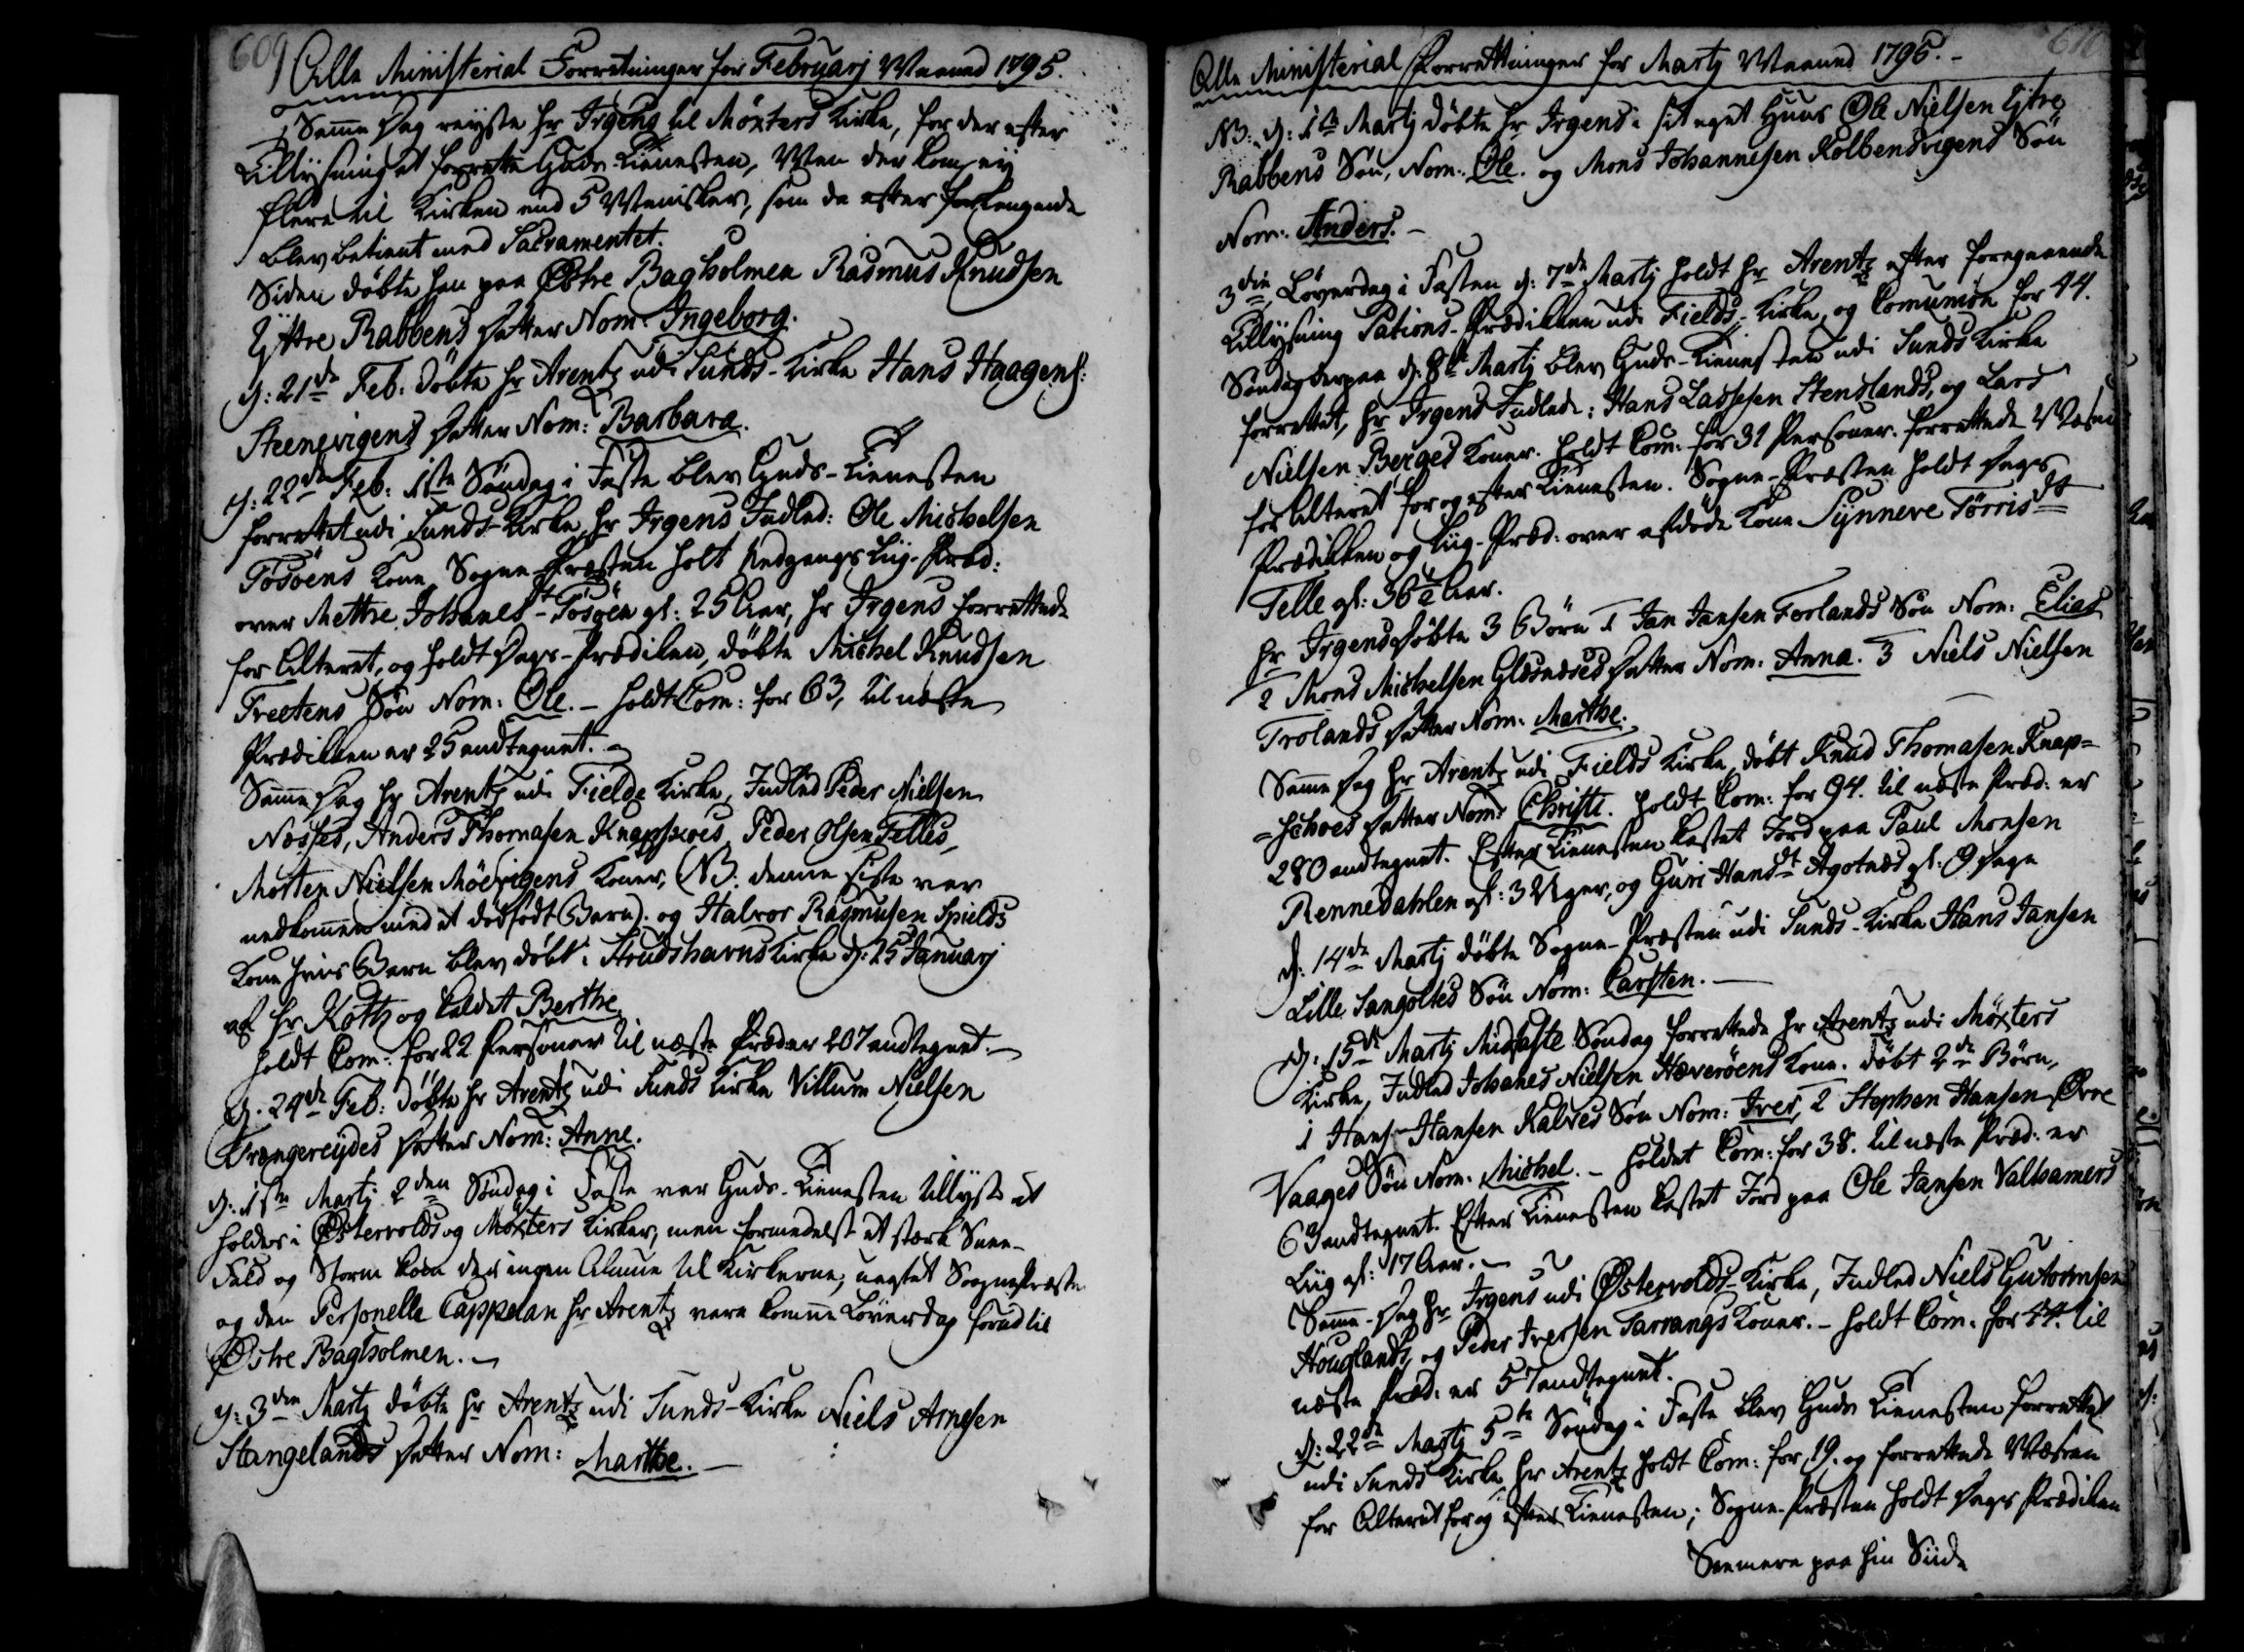 609
Alle Ministerial Forretninger for Februarj Maaned 1795.
Samme Dag reyste Hr Irgens til Möxters Kirke, for der efter
Tillysning at forrette Guds-Tienesten, Men der kom ey
flere til Kirken end 5 Menisker, som da efter forlangende
blev betient med Sacramentet.
Siden döbte han paa Östre Bagholmen Rasmus Knudsen
Yttre Rabbens Datter Nom: Ingeborg.
D: 21de Feb: döbte Hr Arentz udi Sunds-Kirke Hans Haagens:
Steenevigens Datter Nom: Barbara.
D: 22de Feb: 1ste Söndag i Faste blev Guds-Tienesten
forrettet udi Sunds-Kirke, Hr Irgens Indled: Ole Michelsen
Tösöens Kone, Sogne-Præsten holt Nedgangs Liig-Præd:
over Mette Johanesdt Tösöen gl: 25 Aar, Hr Irgens forrettede
for Alteret, og holdt Dags-Prædiken, döbte Michel Knudsen
Treetens Sön Nom: Ole. - holdt Com: for 63, til næste
Prædiken er 25 andtegnet.
Samme Dag Hr Arentz udi Fields Kirke, Indled Peder Nielsen
Nesses, Anders Thomasen Knapskoes, Peder Olsen Telles,
Morten Nielsen Möevigens Koner, (NB. denne siste var
nedkommen med et dödfödt Barn). og Halvor Rasmusen Spields
Kone hvis Barn blev döbt i Strudshavns Kirke D: 25 Januarj
af Hr Koth og kaldet Berthe
holdt Com: for 22 Personer til næste Præd er 207 andtegnet.
D. 24de Feb: döbte Hr Arentz udi Sunds Kirke Villum Nielsen
Trængereydes Datter Nom: Anne.
D: 1ste Martj 2den Söndag i Faste var Guds-Tienesten tillyst at
holdes i Östervolds og Möxters Kirker, men formedelst et stærk Snee-
Fald og Storm kom der ingen Almue til Kirkerne, uagtet Sognepræsten
og den Personelle Cappelan Hr Arentz vare komne Löverdag forud til
Östre Bagholmen.
D: 3den Martj döbte Hr Arentz udi Sunds-Kirke Niels Arnesen
Stangelands Datter Nom: Marthe.
610
Alle Ministerial Forrettninger for Martj Maaned 1795. -
NB. D: 1te Martj döbte Hr Irgens i sit eget Huus Ole Nielsen Yttre
Rabbens Sön, Nom: Ole. og Mons Johannesen Kolbensvigens Sön
Nom: Anders. -
3die Löverdag i Fasten D: 7de Martj holdt Hr Arentz efter foregaaende
Tillysning Pations-Prædiken udi Fields-Kirke, og Comunion for 44.
Söndag derpaa D. 8de Martj blev Guds-Tienesten udi Sunds Kirke
forrettet, Hr Irgens Indlede: Hans Lassesen Stenslands, og Lars
Nielsen Berges Koner. holdt Com: for 31 Personer. forrettede Messen
for Alteret for og efter Tienesten. Sogne-Præsten holdt Dags
Prædiken og Liig-Præd: over afdöde Kone Synneve Törrisdt
Telle gl: 36½ Aar.
Hr Irgens döbte 3 Börn 1 Jan Jansen Forlands Sön Nom: Elias
2 Mons Michelsen Glesnæses Datter Nom: Anna. 3 Niels Nielsen
Trolands Datter Nom: Marthe.
Samme Dag Hr Arentz udi Fields Kirke, döbt Knud Thomasen Knap-
=schoes Datter Nom: Christi. holdt Com: for 94. til næste Præd: er
280 andtegnet. Efter Tienesten kastet Jord paa Paul Monsen
Rennedahlen gl: 3 Uger, og Guri Hansdt Agotnes gl: 9 Dage
D: 14de Martj döbte Sogne-Præsten udi Sunds-Kirke Hans Jansen
Lille Sangoltes Sön Nom: Carsten.
D: 15de Martj Midfaste Söndag forrettede Hr Arentz udi Möxters
Kirke, Indled Johanes Nielsen Hæveröens Kone. döbt 2de Börn,
1 Hans Hansen Kalves Sön Nom: Iver, 2 Stephen Hansen Övre
Vaages Sön Nom: Michel. - holdet Com: for 38. til næste Præd: er
63 andtegnet. Efter Tienesten kastet Jord paa Ole Jansen Valhamers
Liig gl: 17 Aar.
Samme-Dag Hr Irgens udi Östervolds-Kirke, Indled Niels Guttormsen
Höuglands, og Peder Iversen Tarrangs Koner. - holdt Com: for 44. til
næste Præd: er 57 andtegnet.
D: 22de Martj 5te Söndag i Faste blev Guds Tienesten forrettet
udi Sunds Kirke Hr Arentz holdt Com: for 19. og forrettede Messen
for Alteret for og efter Tienesten; Sogne-Præsten holdt Dags Prædiken
See mere paa hin Siide